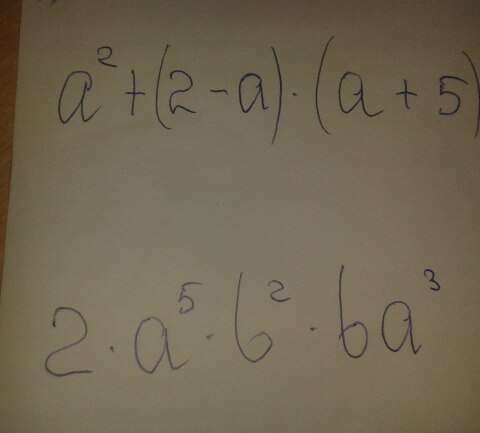 a² + (2 - a) · (a + 5)
2 · a⁵ · b² · ba³